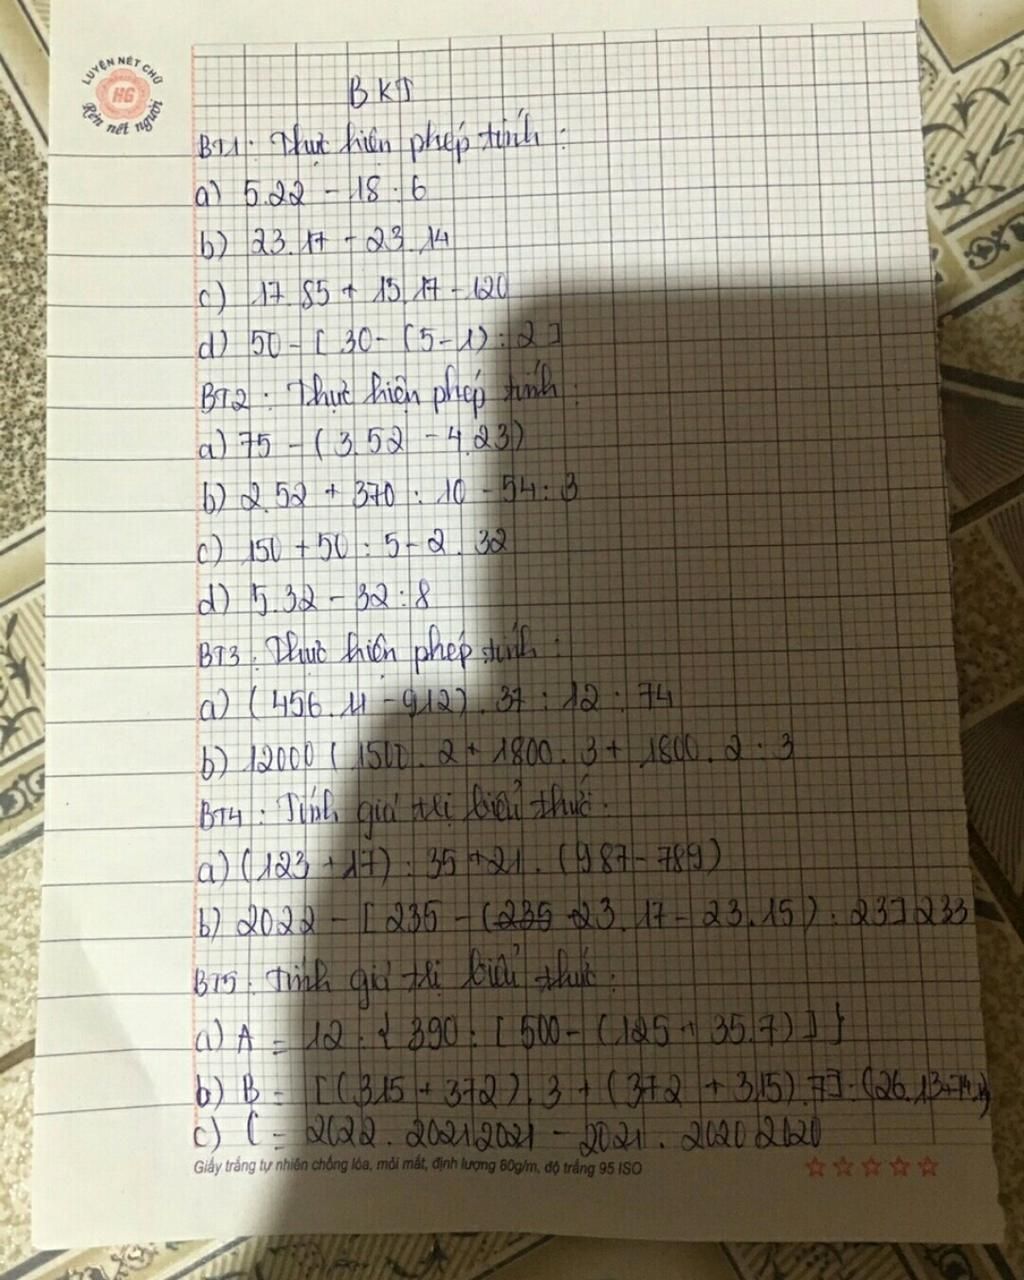 LUYỆN NÉT CHỮ
HG
Rèn nết người
BKT
BT1: Thực hiện phép tính:
a) 5.22 - 18 : 6
b) 23.17 - 23.14
c) 17.85 + 15.17 - 120
d) 50 - [ 30 - (5 - 1) : 2 ]
BT2: Thực hiện phép tính:
a) 75 - (3.52 - 4.23)
b) 2.52 + 370 : 10 - 54 : 3
c) 150 + 50 : 5 - 2 . 32
d) 5.32 - 32 : 8
BT3: Thực hiện phép tính:
a) (456.11 - 912) . 37 : 12 : 74
b) 12000 ( 1500 . 2 + 1800 . 3 + 1800 . 2 : 3
BT4: Tính giá trị biểu thức:
a) (123 + 17) : 35 + 21 . (987 - 789)
b) 2022 - [ 235 - ( 23.17 - 23.15) : 23] 233
BT5: Tính giá trị biểu thức:
a) A = 12 : { 390 : [ 500 - (125 + 35.7) ] }
b) B = [(315 + 372) . 3 + (372 + 315) . 7] : (26.13+74.
c) C = 2022 . 20212021 - 2021 . 20202020
Giấy trắng tự nhiên chống lóa, mỏi mắt, định lượng 80g/m, độ trắng 95 ISO